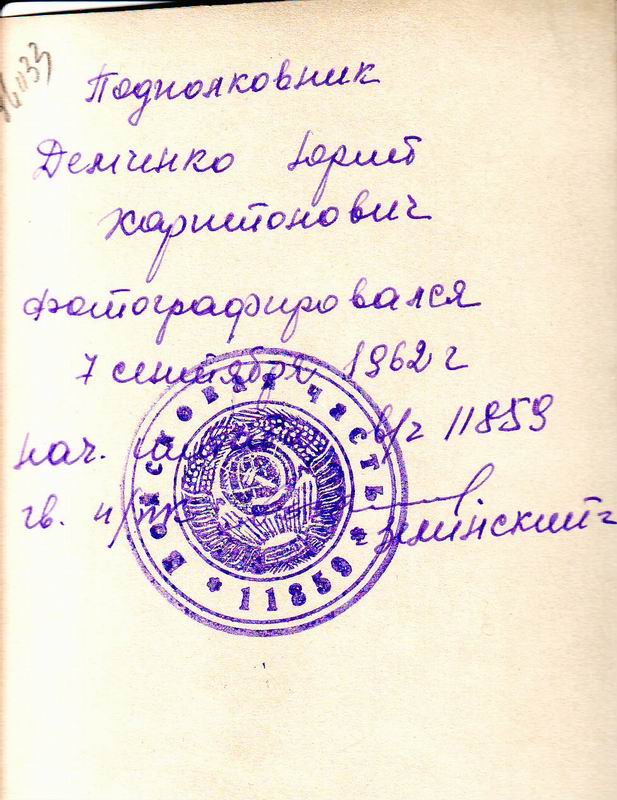 Подполковник
Демченко Юрий
Харитонович
фотографировался
7 сентября 1962 г
нач. в/ч 11859
гв. п/п-к Зелинский
ВОЙСКОВАЯ ЧАСТЬ
* 11859 *